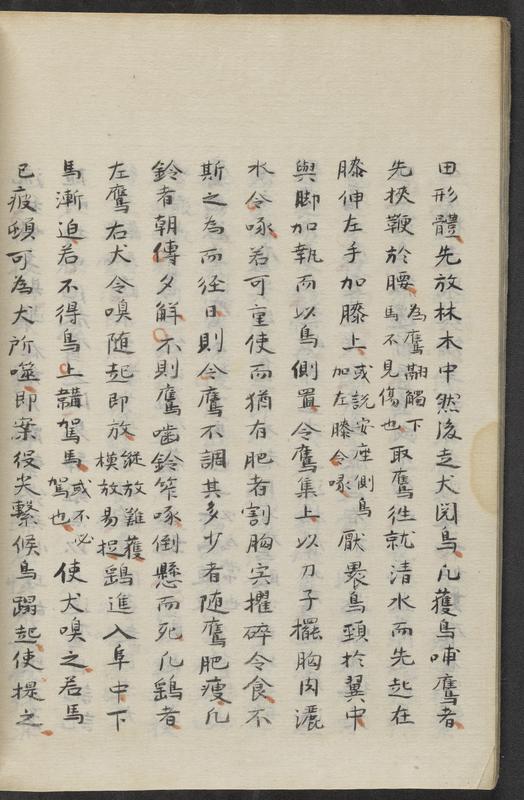 田形體先放林木中然後走犬閲鳥凡獲鳥哺鷹者
先挾鞭於腰為鷹翩觸下馬不見傷也取鷹徃就清水而先起在
膝伸左手加膝上或説安座側鳥加左膝令喙厭褁鳥頸於翼中
與脚加執而以鳥側置令鷹集上以刀子擺胸肉灑
水令喙若可重使而猶有肥者割胸宍擢碎令食不
斯之為而径日則令鷹不調其多少者随鷹肥痩凡
鈴者朝傳夕解不則鷹嚙鈴笇啄倒懸而死凡鷂者
左鷹右犬令嗅随起即放縦放難獲横放易捉鷂進入阜中下
馬漸迫若不得鳥上韝駕馬或不必駕也使犬嗅之若馬
已疲頓可為犬所噬即案役犬繫候鳥蹋起使提之